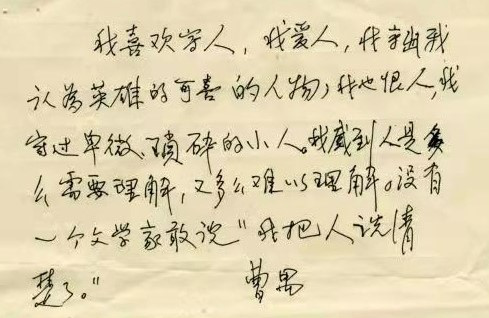 我喜欢写人，我爱人，我写出我
认为英雄的可喜的人物，我也恨人，我
写过卑微、琐碎的小人。我感到人是多
么需要理解，又多么难以理解。没有
一个文学家敢说“我把人说清
楚了。”　　曹禺